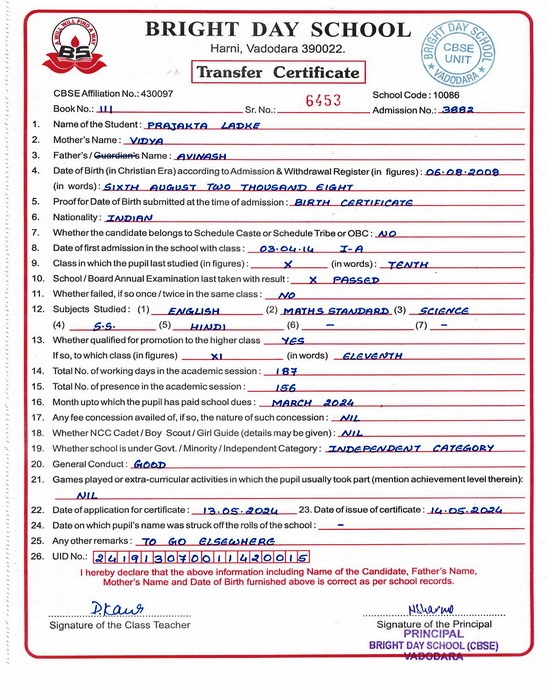 WILL WILL FIND A WAY
BS
BRIGHT DAY SCHOOL
Harni, Vadodara 390022.
Transfer Certificate
BRIGHT DAY SCHOOL
CBSE
UNIT
VADODARA
CBSE Affiliation No.: 430097 School Code : 10086
Book No.: III Sr. No.: 6453 Admission No.: 3882
1. Name of the Student : PRAJAKTA LADKE
2. Mother's Name : VIDYA
3. Father's / Guardian's Name : AVINASH
4. Date of Birth (in Christian Era) according to Admission & Withdrawal Register (in figures) : 06-08-2008
(in words) : SIXTH AUGUST TWO THOUSAND EIGHT
5. Proof for Date of Birth submitted at the time of admission : BIRTH CERTIFICATE
6. Nationality : INDIAN
7. Whether the candidate belongs to Schedule Caste or Schedule Tribe or OBC : NO
8. Date of first admission in the school with class : 03.04.14 I-A
9. Class in which the pupil last studied (in figures) : X (in words) : TENTH
10. School / Board Annual Examination last taken with result : X PASSED
11. Whether failed, if so once / twice in the same class : NO
12. Subjects Studied : (1) ENGLISH (2) MATHS STANDARD (3) SCIENCE
(4) S.S. (5) HINDI (6) – (7) –
13. Whether qualified for promotion to the higher class YES
If so, to which class (in figures) XI (in words) ELEVENTH
14. Total No. of working days in the academic session : 187
15. Total No. of presence in the academic session : 156
16. Month upto which the pupil has paid school dues : MARCH 2024
17. Any fee concession availed of, if so, the nature of such concession : NIL
18. Whether NCC Cadet / Boy Scout / Girl Guide (details may be given) : NIL
19. Whether school is under Govt. / Minority / Independent Category : INDEPENDENT CATEGORY
20. General Conduct : GOOD
21. Games played or extra-curricular activities in which the pupil usually took part (mention achievement level therein):
NIL
22. Date of application for certificate : 13.05.2024 23. Date of issue of certificate : 14.05.2024
24. Date on which pupil's name was struck off the rolls of the school : –
25. Any other remarks : TO GO ELSEWHERE
26. UID No.: 241913070011420015
I hereby declare that the above information including Name of the Candidate, Father's Name,
Mother's Name and Date of Birth furnished above is correct as per school records.
Signature of the Class Teacher Signature of the Principal
PRINCIPAL
BRIGHT DAY SCHOOL (CBSE)
VADODARA